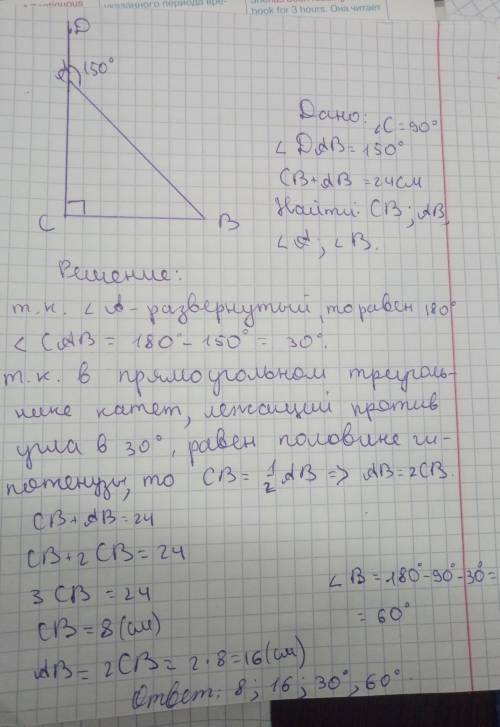 указанного периода вре-
book for 3 hours. Она читает
D
A 150°
C
B
Дано: ∠C=90°
∠DAB=150°
CB+AB=24см
Найти: CB; AB,
∠A; ∠B.
Решение:
т.к. ∠A - развернутый, то равен 180°
∠CAB = 180°-150° = 30°.
т.к. в прямоугольном треуголь-
нике катет, лежащий против
угла в 30°, равен половине ги-
потенузы, то CB = 1/2 AB => AB=2CB.
CB+AB=24
CB+2CB=24
3CB=24
CB=8(см)
AB=2CB=2·8=16(см)
∠B=180°-90°-30°=
=60°
Ответ: 8; 16; 30°, 60°.